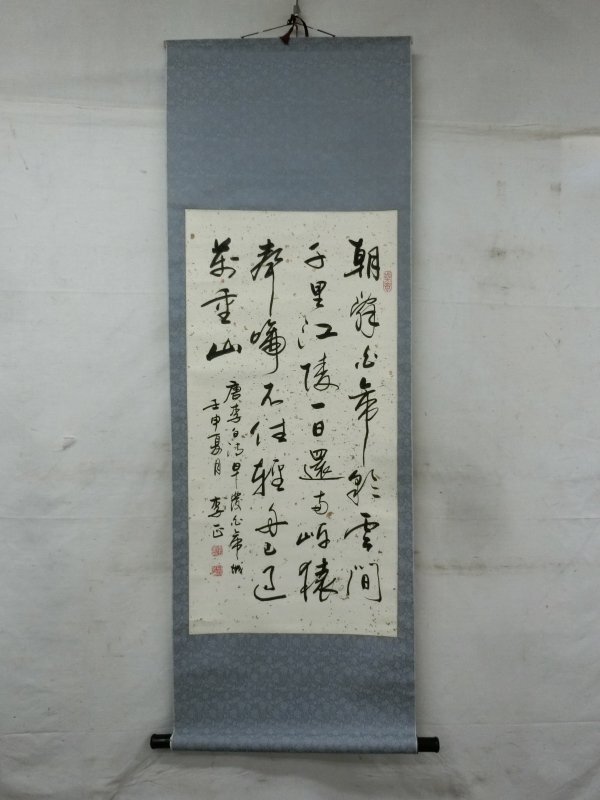 朝辞白帝彩雲間
千里江陵一日還両岸猿
声啼不住軽舟已過
萬重山
唐李白詩早發白帝城
壬申夏月 李正